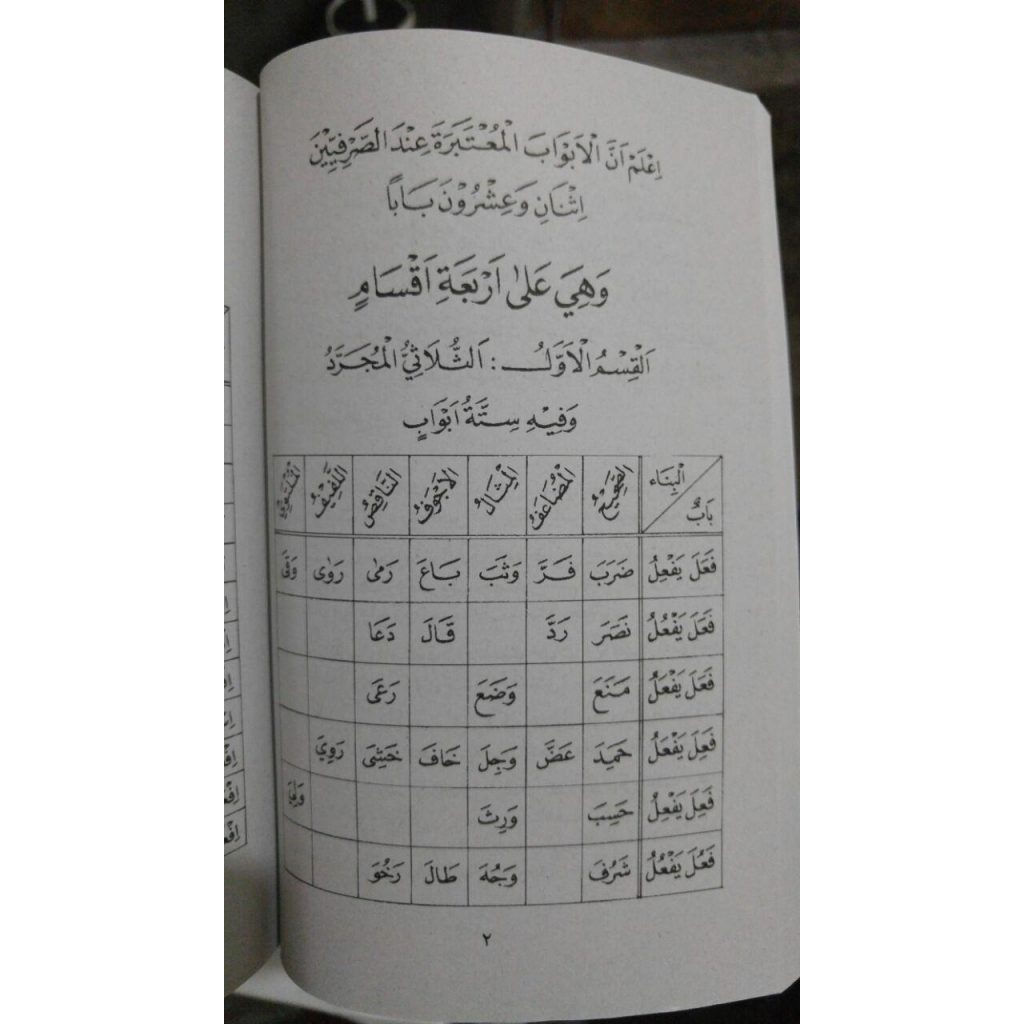 اِعْلَمْ اَنَّ الْاَبْوَابَ الْمُعْتَبَرَةَ عِنْدَ الصَّرْفِيِّيْنَ
اِثْنَانِ وَعِشْرُوْنَ بَابًا
وَهِيَ عَلٰى اَرْبَعَةِ اَقْسَامٍ
اَلْقِسْمُ الْاَوَّلُ : اَلثُّلَاثِيُّ الْمُجَرَّدُ
وَفِيْهِ سِتَّةُ اَبْوَابٍ
اَلْبِنَاء بَابُ اَلصَّحِيْحُ اَلْمُضَاعَفُ اَلْمِثَالُ اَلْاَجْوَفُ اَلنَّاقِصُ اَللَّفِيْفُ
فَعَلَ يَفْعِلُ ضَرَبَ فَرَّ وَثَبَ بَاعَ رَمٰى رَوٰى وَقٰى
فَعَلَ يَفْعُلُ نَصَرَ رَدَّ قَالَ دَعَا
فَعَلَ يَفْعَلُ مَنَعَ وَضَعَ رَعَى
فَعِلَ يَفْعَلُ حَمِدَ عَضَّ وَجِلَ خَافَ خَشِيَ رَوِيَ
فَعِلَ يَفْعِلُ حَسِبَ وَرِثَ
فَعُلَ يَفْعُلُ شَرُفَ وَجُهَ طَالَ رَخُوَ
٢